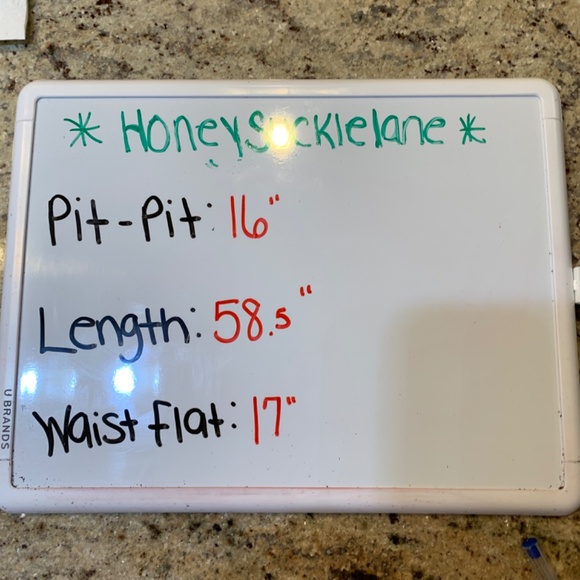 * HoneySucklelane *
Pit-Pit: 16"
Length: 58.5"
Waist flat: 17"
U BRANDS